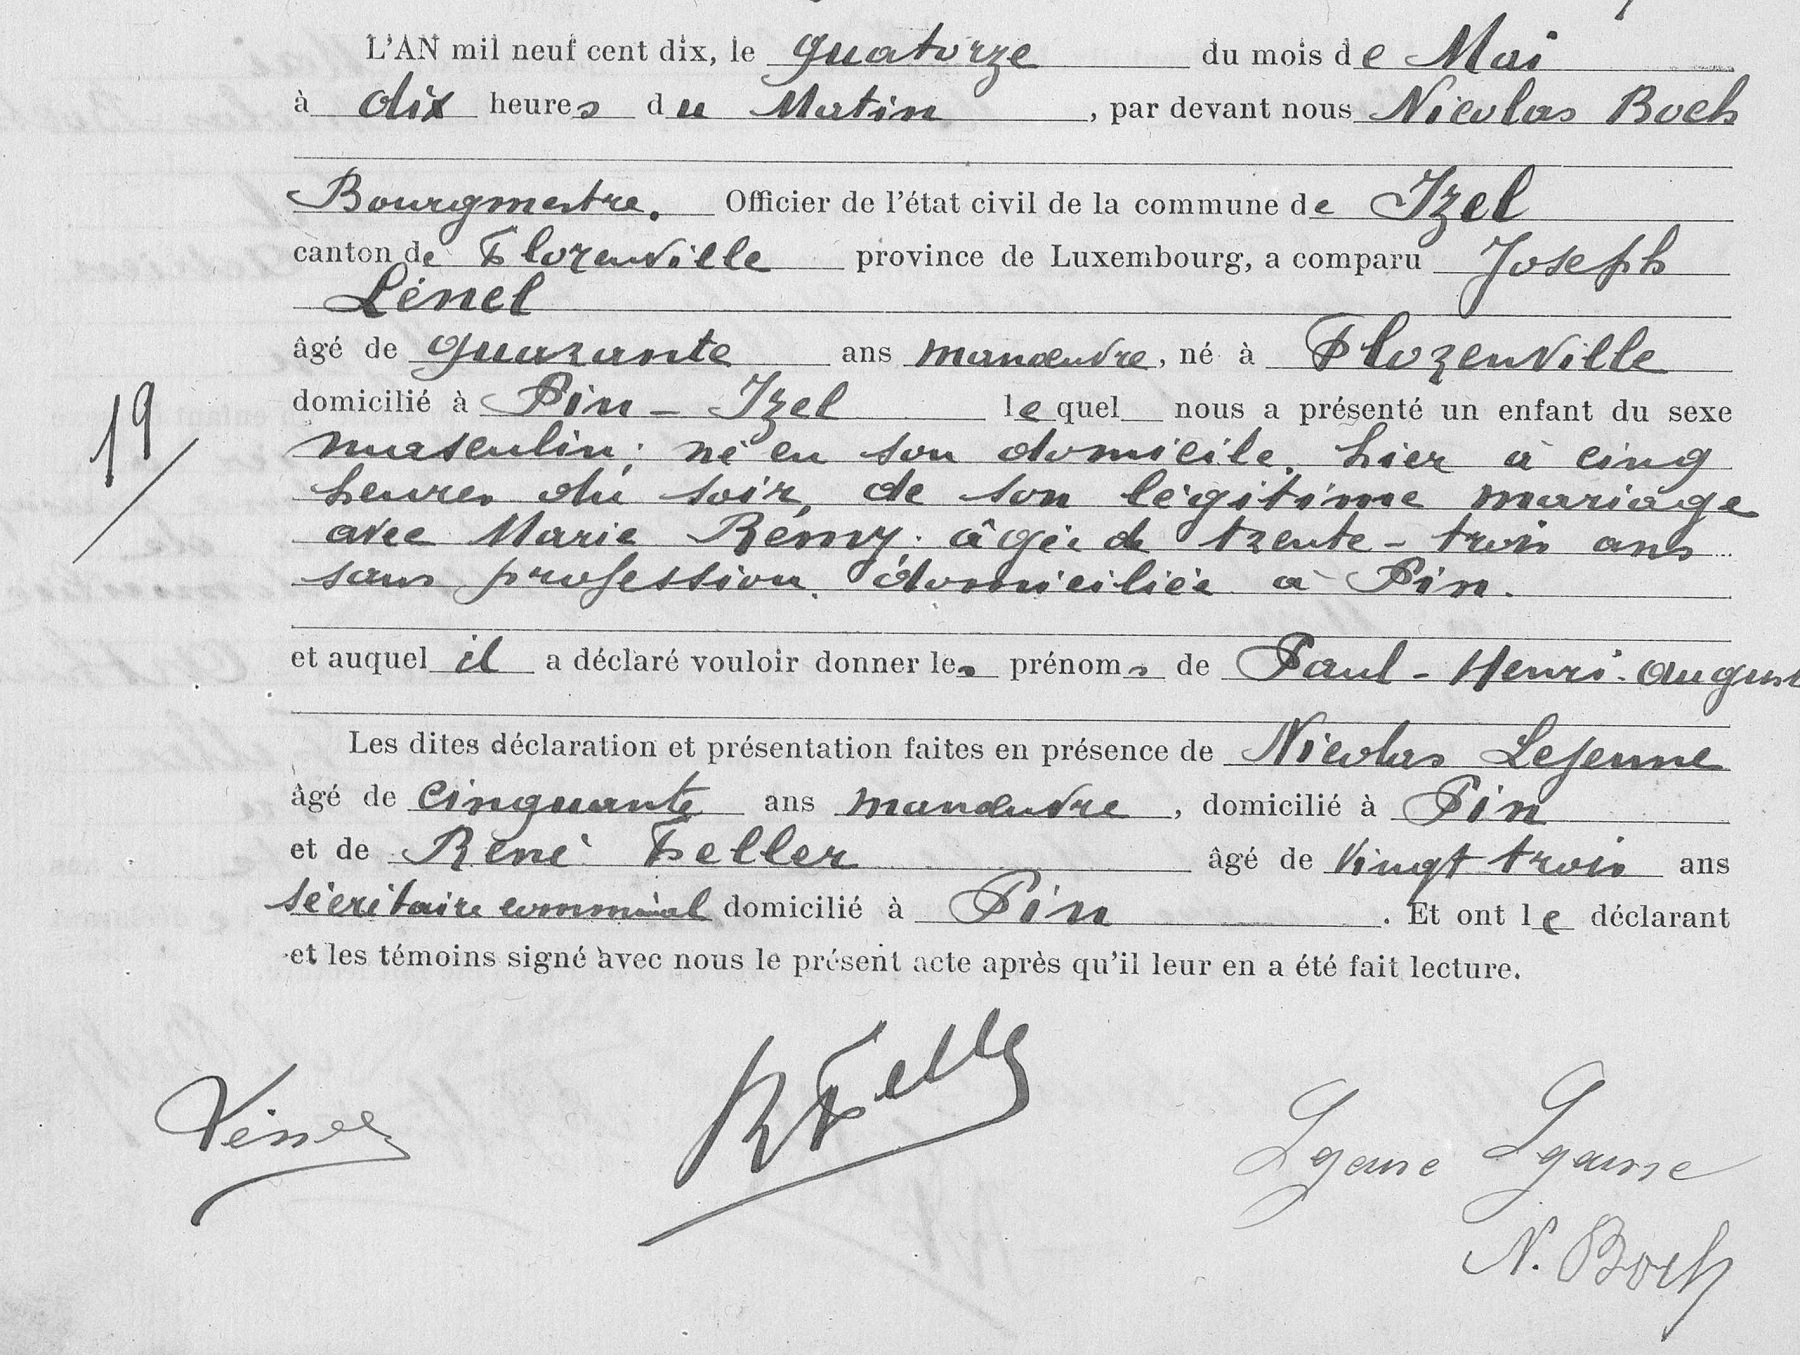 L'AN mil neuf cent dix, le quatorze du mois de Mai
à dix heures du Matin, par devant nous Nicolas Boch
Bourgmestre. Officier de l'état civil de la commune de Izel
canton de Florenville province de Luxembourg, a comparu Joseph
Lénel
âgé de quarante ans manœuvre, né à Florenville
domicilié à Pin - Izel lequel nous a présenté un enfant du sexe
19
masculin; né en son domicile, hier à cinq
heures du soir, de son légitime mariage
avec Marie Rémy, âgée de trente-trois ans
sans profession, domiciliée à Pin.
et auquel il a déclaré vouloir donner les prénoms de Paul - Henri - August
Les dites déclaration et présentation faites en présence de Nicolas Lejeune
âgé de cinquante ans manœuvre, domicilié à Pin
et de René Feller âgé de vingt trois ans
sécrétaire communal domicilié à Pin. Et ont le déclarant
et les témoins signé avec nous le présent acte après qu'il leur en a été fait lecture.
Lénel
R Feller
N. Boch